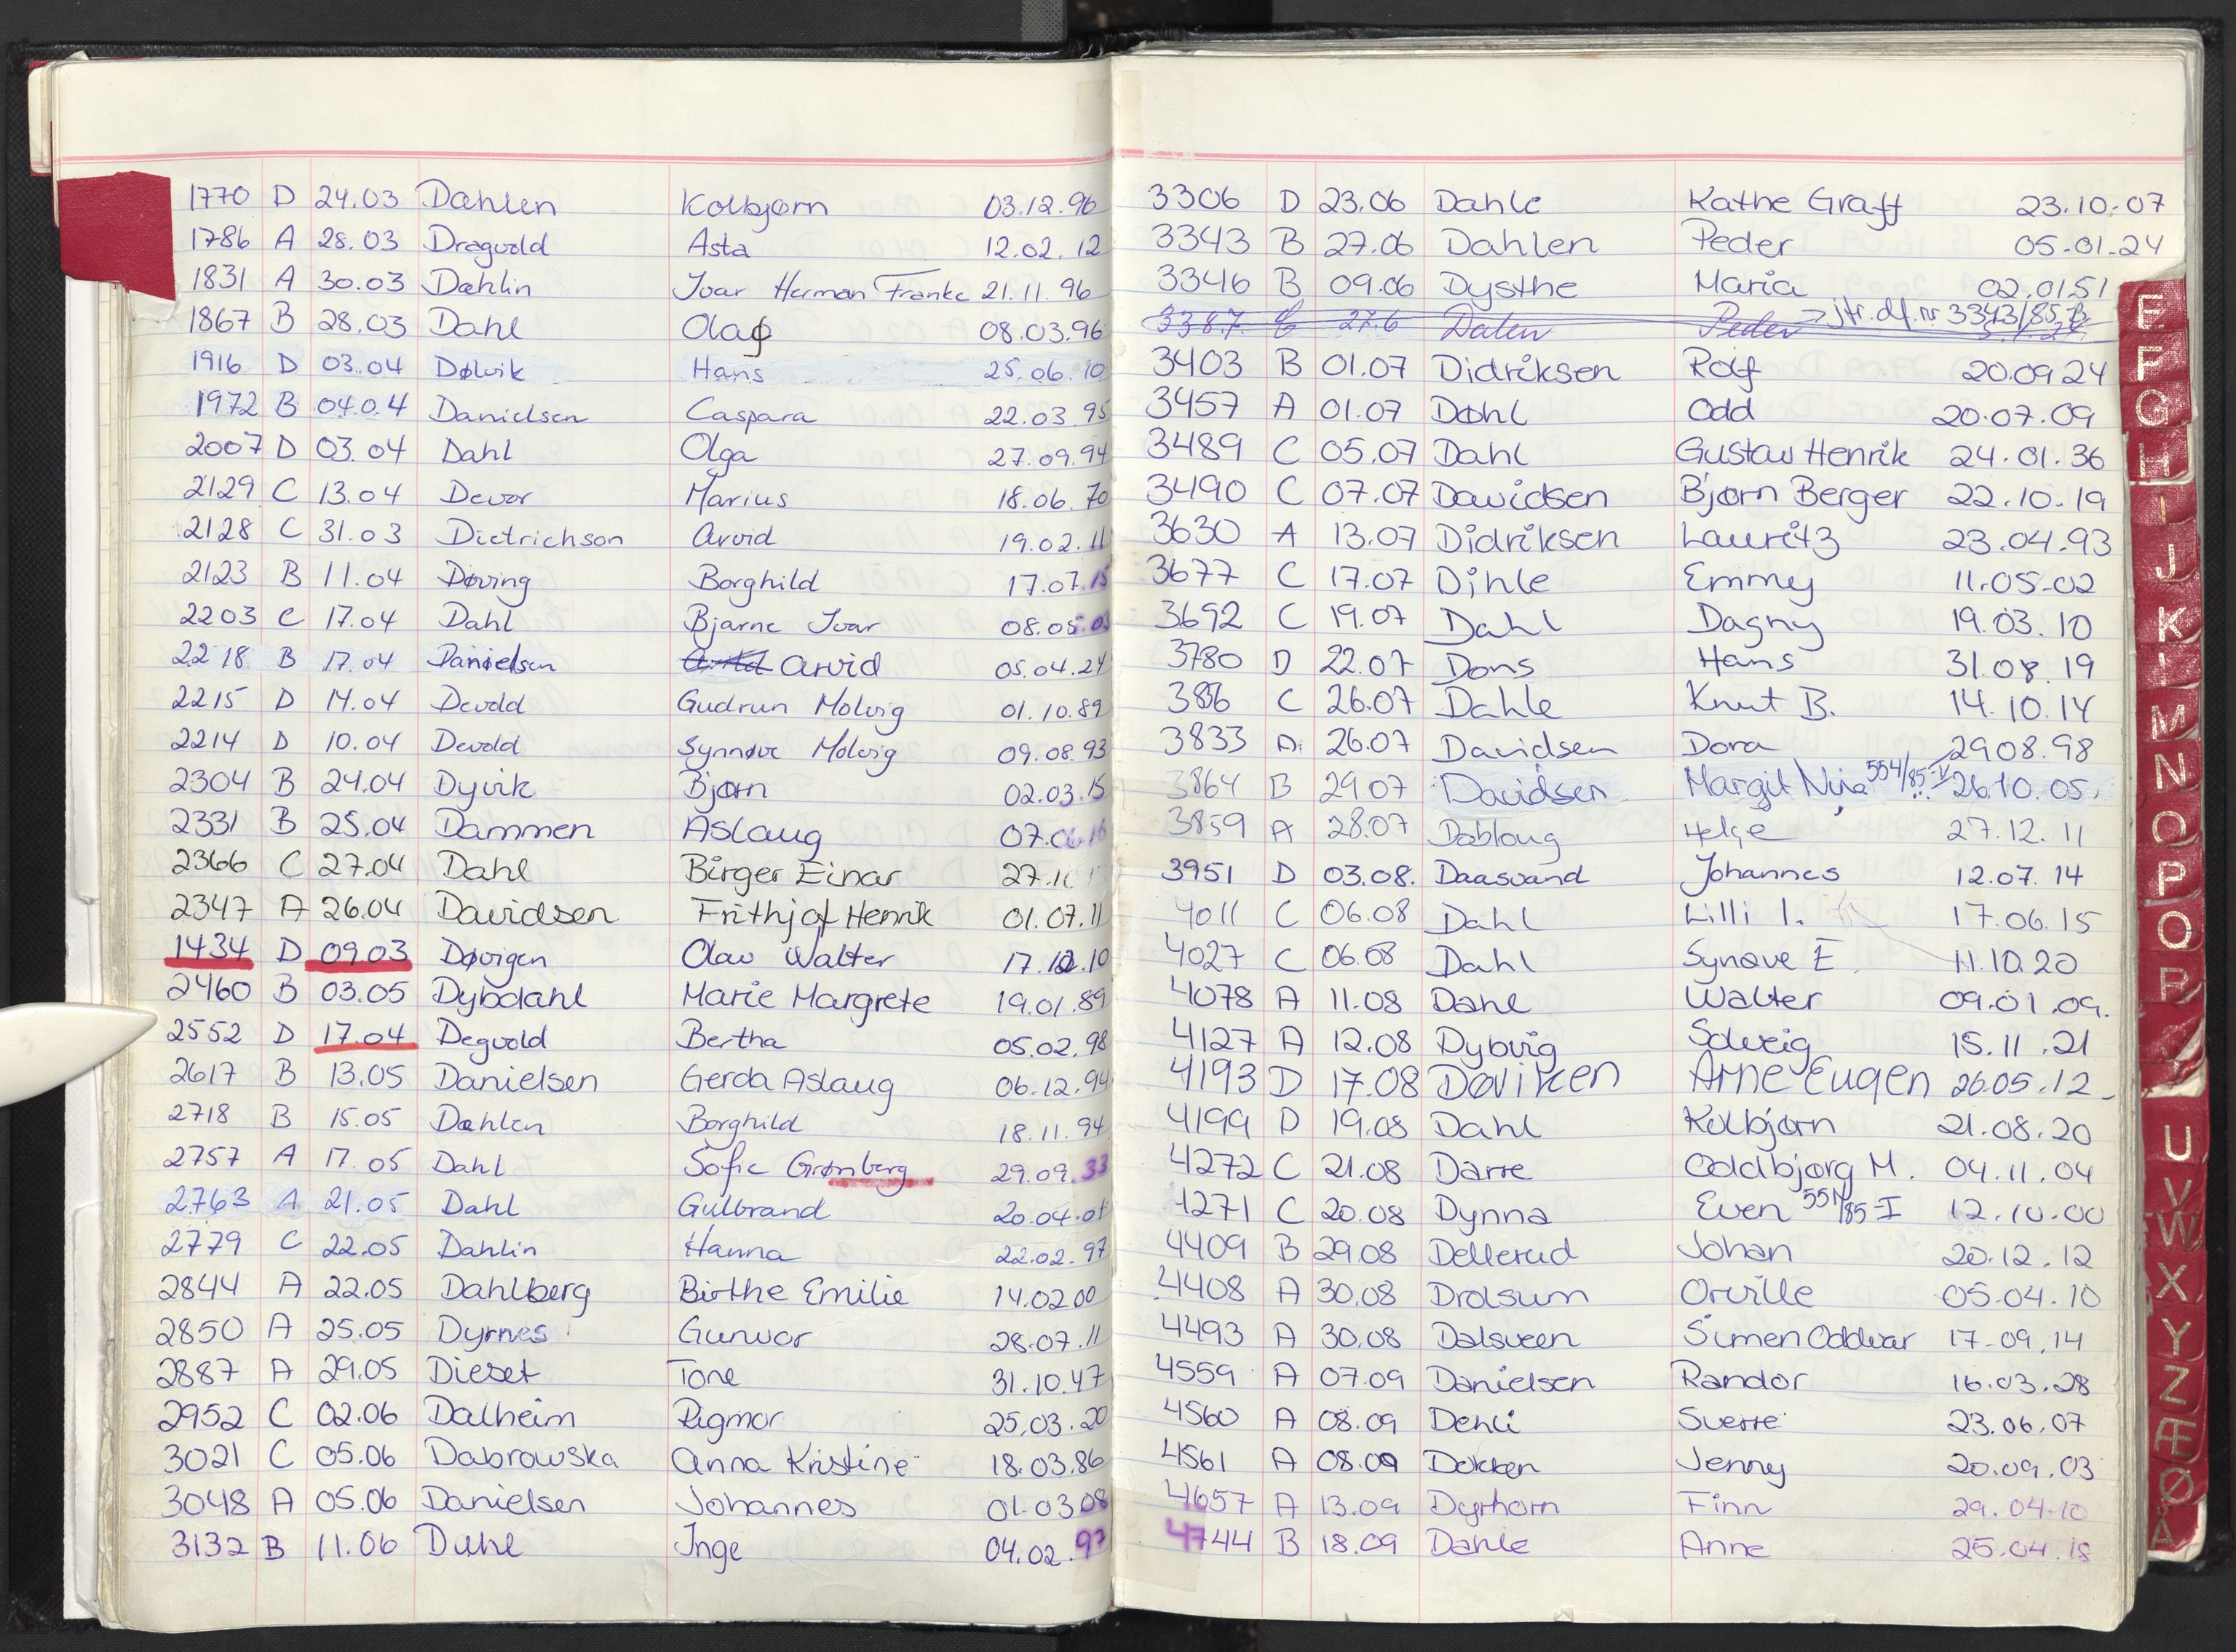 1770 D 24.03 Dahlen Kolbjørn 03.12.96
1786 A 28.03 Dragvold Asta 12.02.12
1831 A 30.03 Dahlin Ivar Herman Franke 21.11.96
1867 B 28.03 Dahl Olaf 08.03.96
1916 D 03.04 Dølvik Hans 25.06.10
1972 B 04.04 Danielsen Caspara 22.03.95
2007 D 03.04 Dahl Olga 27.09.94
2129 C 13.04 Devor Marius 18.06.70
2128 C 31.03 Dietrichson Arvid 19.02.11
2123 B 11.04 Døving Borghild 17.07.15
2203 C 17.04 Dahl Bjarne Ivar 08.05.03
2218 B 17.04 Danielsen Arvid 05.04.24
2215 D 14.04 Devold Gudrun Molvig 01.10.89
2214 D 10.04 Devold Synnøve Molvig 09.08.93
2304 B 24.04 Dyvik Bjørn 02.03.15
2331 B 25.04 Dammen Aslaug 07.06.16
2366 C 27.04 Dahl Birger Einar
2347 A 26.04 Davidsen Frithjof Henrik 01.07.11
1434 D 09.03 Døvigen Olav Walter 17.12.10
2460 B 03.05 Dybdahl Marie Margrete 19.01.89
2552 D 17.04 Degvold Bertha 05.02.98
2617 B 13.05 Danielsen Gerda Aslaug 06.12.94
2718 B 15.05 Dahlen Borghild 18.11.94
2757 A 17.05 Dahl Sofie Grønberg 29.09.33
2763 A 21.05 Dahl Gulbrand 20.04.01
2779 C 22.05 Dahlin Hanna 22.02.97
2844 A 22.05 Dahlberg Birthe Emilie 14.02.00
2850 A 25.05 Dyrnes Gunvor 28.07.11
2887 A 29.05 Dieset Tone 31.10.47
2952 C 02.06 Dalheim Rigmor 25.03.20
3021 C 05.06 Dabrowska Anna Kristine 18.03.86
3048 A 05.06 Danielsen Johannes 01.03.08
3132 B 11.06 Dahl Inge 04.02.97
3306 D 23.06 Dahle Kathe Graff 23.10.07
3343 B 27.06 Dahlen Peder 05.01.24
3346 B 09.06 Dysthe Maria 02.01.51
3387 27.6 Dalen Peder → jfr. df. nr 3343/85 B
3403 B 01.07 Didriksen Rolf 20.09.24
3457 A 01.07 Dahl Odd 20.07.09
3489 C 05.07 Dahl Gustav Henrik 24.01.36
3490 C 07.07 Davidsen Bjørn Berger 22.10.19
3630 A 13.07 Didriksen Lauritz 23.04.93
3677 C 17.07 Dihle Emmy 11.05.02
3692 C 19.07 Dahl Dagny 19.03.10
3780 D 22.07 Dons Hans 31.08.19
C 26.07 Dahle Knut B. 14.10.14
3833 A 26.07 Davidsen Dora 29.08.98
3864 B 29.07 Davidsen Margit Nina 554/85-V 26.10.05
3859 A 28.07 Dobloug Helge 27.12.11
3951 D 03.08. Daasvand Johannes 12.07.14
4011 C 06.08 Dahl Lilli I. 17.06.15
4027 C 06.08 Dahl Synøve E. 11.10.20
4078 A 11.08 Dahl Walter 09.01.09.
4127 A 12.08 Dybvig Solveig 15.11.21
4193 D 17.08 Døviken Arne Eugen 26.05.12
4199 D 19.08 Dahl Kolbjørn 21.08.20
4272 C 21.08 Darre Oddbjørg M. 04.11.04
4271 C 20.08 Dynna Even 551/85-I 12.10.00
4409 B 29.08 Dellerud Johan 20.12.12
4408 A 30.08 Drolsum Orville 05.04.10
4493 A 30.08 Dalsveen Simen Oddvar 17.09.14
4559 A 07.09 Danielsen Randor 16.03.28
4560 A 08.09 Dehli Sverre 23.06.07
4561 A 08.09 Dokken Jenny 20.09.03
4657 A 13.09 Dyrhorn Finn 29.04.10
4744 B 18.09 Dahle Anne 25.04.18
E
F
G
H
I
J
K
M
N
O
P
Q
R
U
V
W
X
Y
Z
Æ
Ø
Å